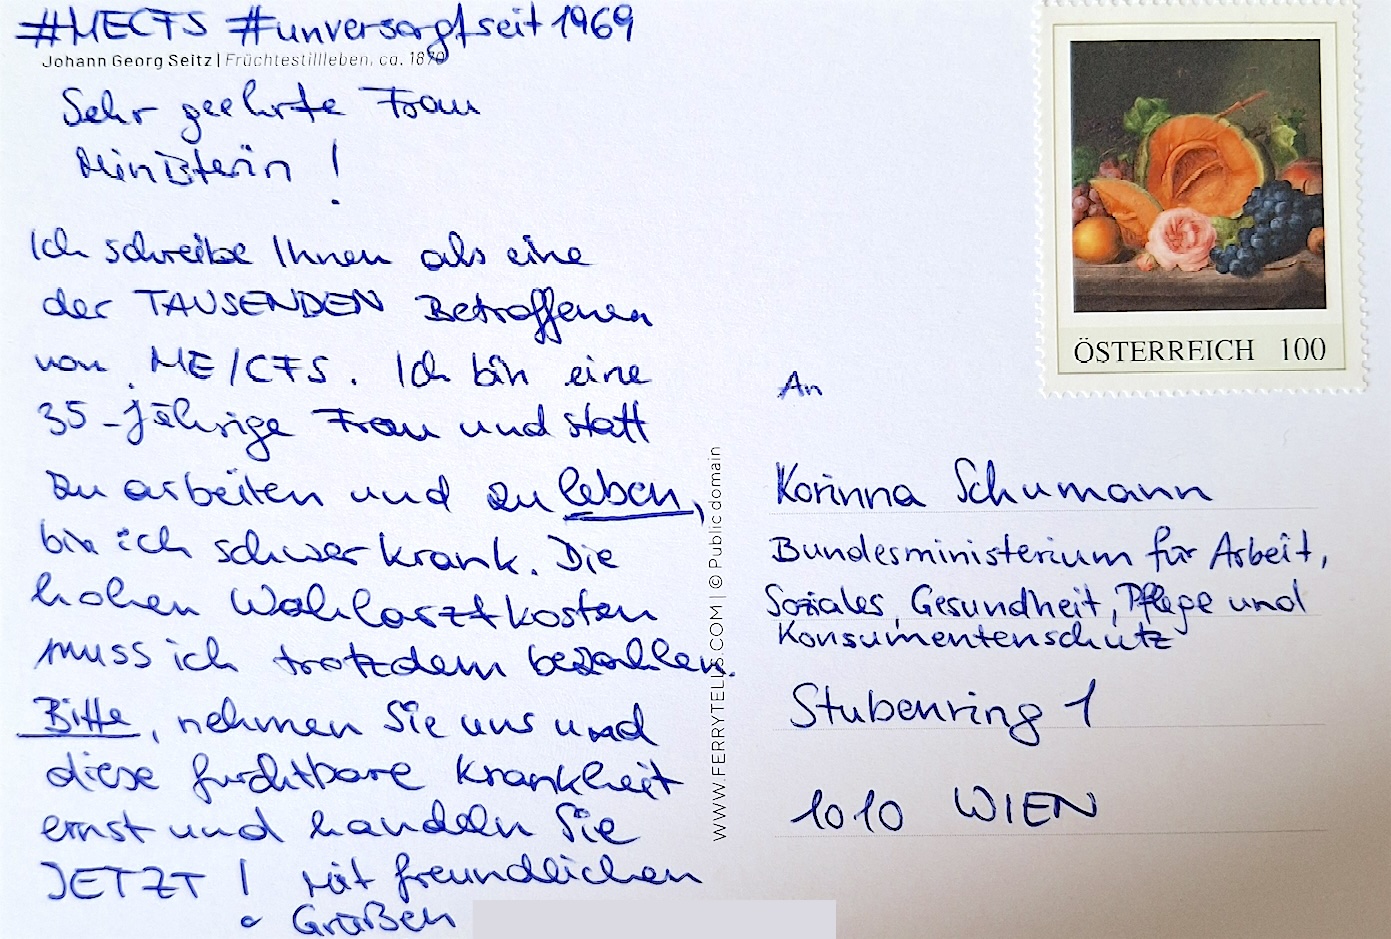 #MECFS #unversorgtseit1969
Johann Georg Seitz | Früchtestillleben, ca. 1870
Sehr geehrte Frau
Ministerin!
Ich schreibe Ihnen als eine
der TAUSENDEN Betroffenen
von ME/CFS. Ich bin eine
35-jährige Frau und statt
zu arbeiten und zu leben,
bin ich schwer krank. Die
hohen Wahlarztkosten
muss ich trotzdem bezahlen.
Bitte, nehmen Sie uns und
diese furchtbare Krankheit
ernst und handeln Sie
JETZT! Mit freundlichen
Grüßen
WWW.FERRYTELLS.COM | © Public domain
ÖSTERREICH 100
An
Korinna Schumann
Bundesministerium für Arbeit,
Soziales, Gesundheit, Pflege und
Konsumentenschutz
Stubenring 1
1010 WIEN